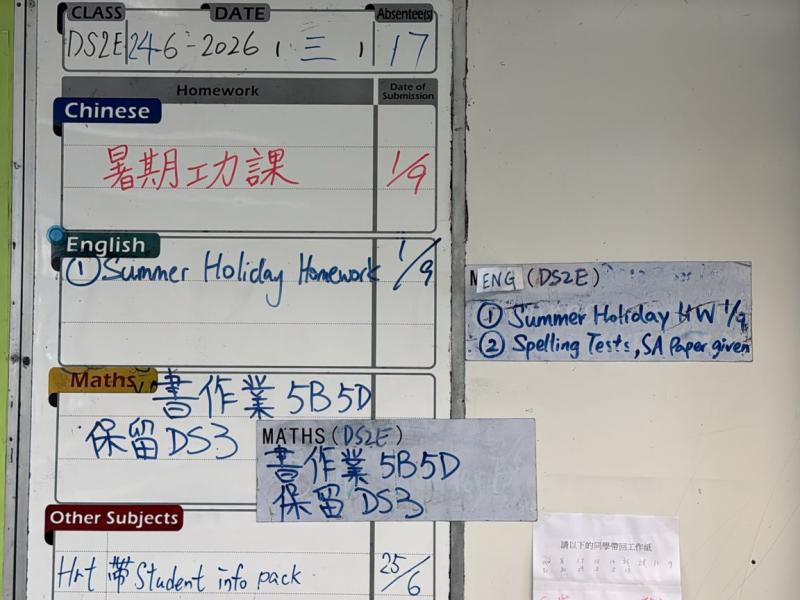 CLASS DATE Absentee(s)
DS2E 24-6-2026 ( 三 ) 17
Homework Date of Submission
Chinese
暑期功課 1/9
English
① Summer Holiday Homework 1/9
Maths
書作業 5B 5D
保留 DS3
Other Subjects
Hrt 帶 Student info pack 25/6
ENG (DS2E)
① Summer Holiday HW 1/9
② Spelling Tests, SA Paper given
MATHS (DS2E)
書作業 5B 5D
保留 DS3
請以下的同學帶回工作紙